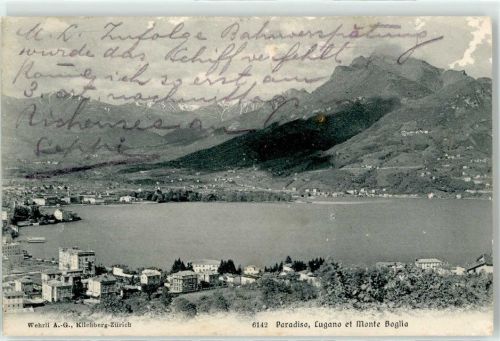 M. K. Zufolge Bahnverspätung
wurde das Schiff verfehlt
kann ich so erst am
3. nachmitt.
Seppi
Wehrli A.-G., Kilchberg-Zürich
6142 Paradiso, Lugano et Monte Boglia